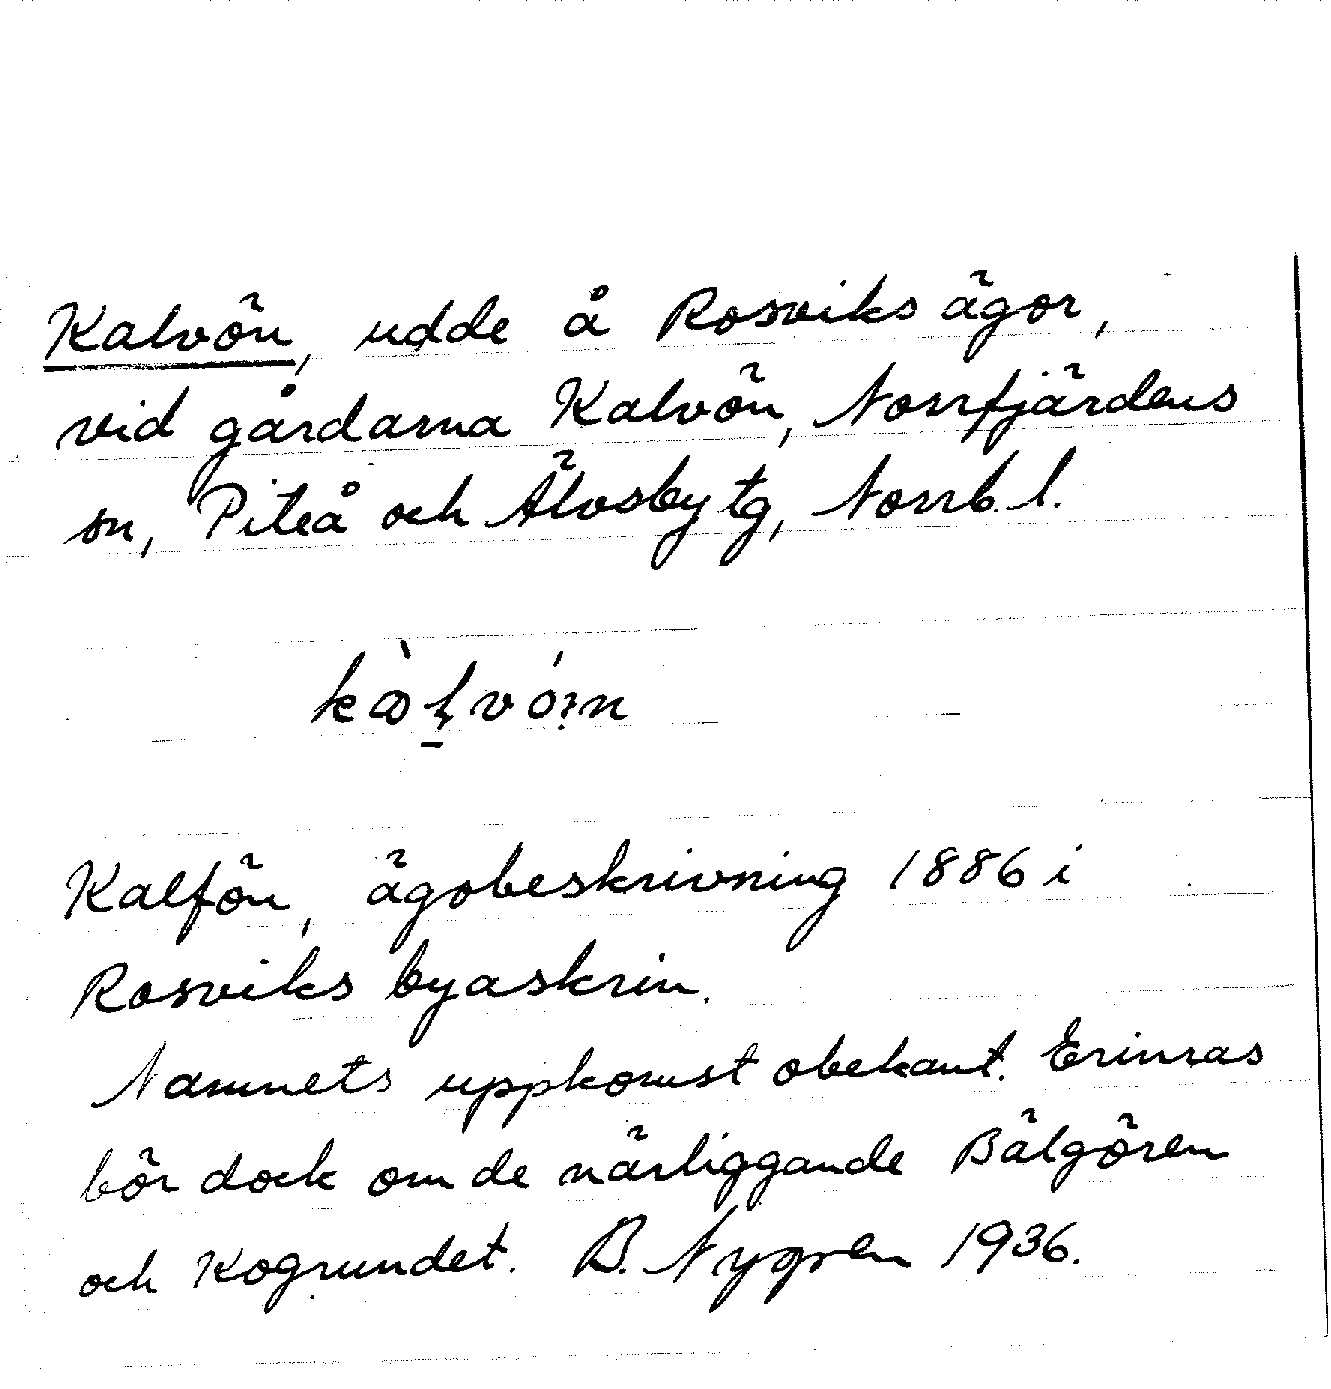 Kalvön, udde å Rosviks ägor,
vid gårdarna Kalvön, Norrfjärdens
sn, Piteå och Älvsby tg, Norrb. l.
Kalfön, ägobeskrivning 1886 i
Rosviks byaskrin.
Namnets uppkomst obekant. Erinras
bör dock om de närliggande Bälgören
och Kogrundet. B. Nygren 1936.